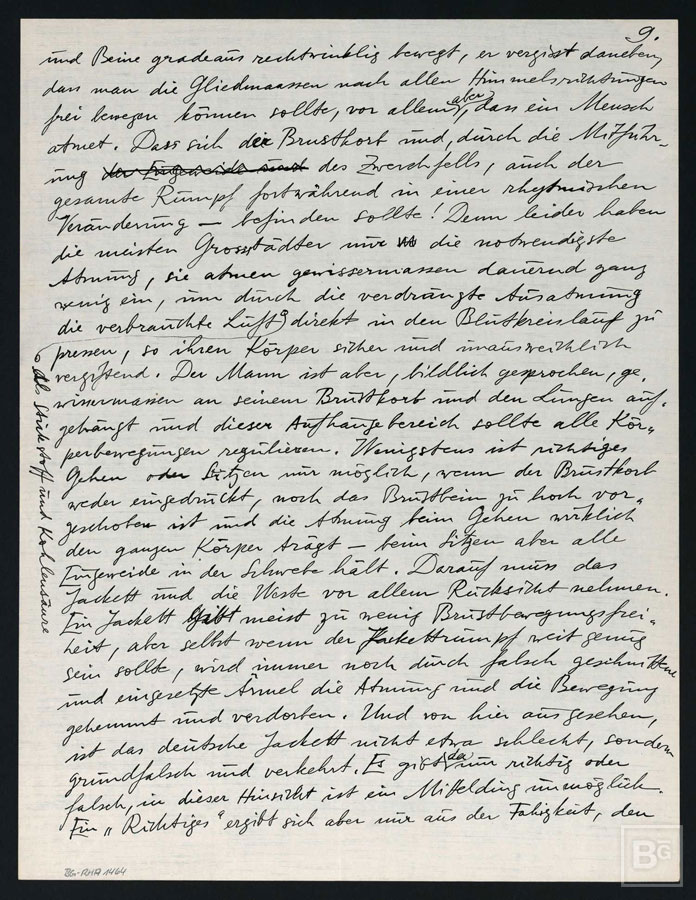 9.
und Beine gradeaus rechtwinklig bewegt, er vergisst daneben,
dass man die Gliedmaassen nach allen Himmelsrichtungen
frei bewegen können sollte, vor allem aber, dass ein Mensch
atmet. Dass sich der Brustkorb und, durch die Mitführ-
ung der Eingeweide und des Zwerchfells, auch der
gesamte Rumpf fortwährend in einer rhytmischen
Veränderung — befinden sollte! Denn leider haben
die meisten Grosstädter nur die notwendigste
Atmung, sie atmen gewissermassen dauernd ganz
wenig ein, um durch die verdrängte Ausatmung
die verbrauchte Luft direkt in den Blutkreislauf zu
pressen, so ihren Körper sicher und unausweichlich
vergiftend. Der Mann ist aber, bildlich gesprochen, ge-
wissermassen an seinem Brustkorb und den Lungen auf-
gehängt und dieser Aufhängebereich sollte alle Kör-
perbewegungen regulieren. Wenigstens ist richtiges
Gehen oder Sitzen nur möglich, wenn der Brustkorb
weder eingedrückt, noch das Brustbein zu hoch vor-
geschoben ist und die Atmung beim Gehen wirklich
den ganzen Körper trägt — beim Sitzen aber alle
Eingeweide in der Schwebe hält. Darauf muss das
Jackett und die Weste vor allem Rücksicht nehmen.
Ein Jackett gibt meist zu wenig Brustbewegungsfrei-
heit, aber selbst wenn der Jackettrumpf weit genug
sein sollte, wird immer noch durch falsch geschnittene
und eingesetzte Ärmel die Atmung und die Bewegung
gehemmt und verdorben. Und von hier aus gesehen,
ist das deutsche Jackett nicht etwa schlecht, sondern
grundfalsch und verkehrt. Es gibt da nur richtig oder
falsch, in dieser Hinsicht ist ein Mittelding unmöglich.
Ein „Richtiges" ergibt sich aber nur aus der Fähigkeit, den
als Stickstoff und Kohlensäure
BG-RHA 1464
BG